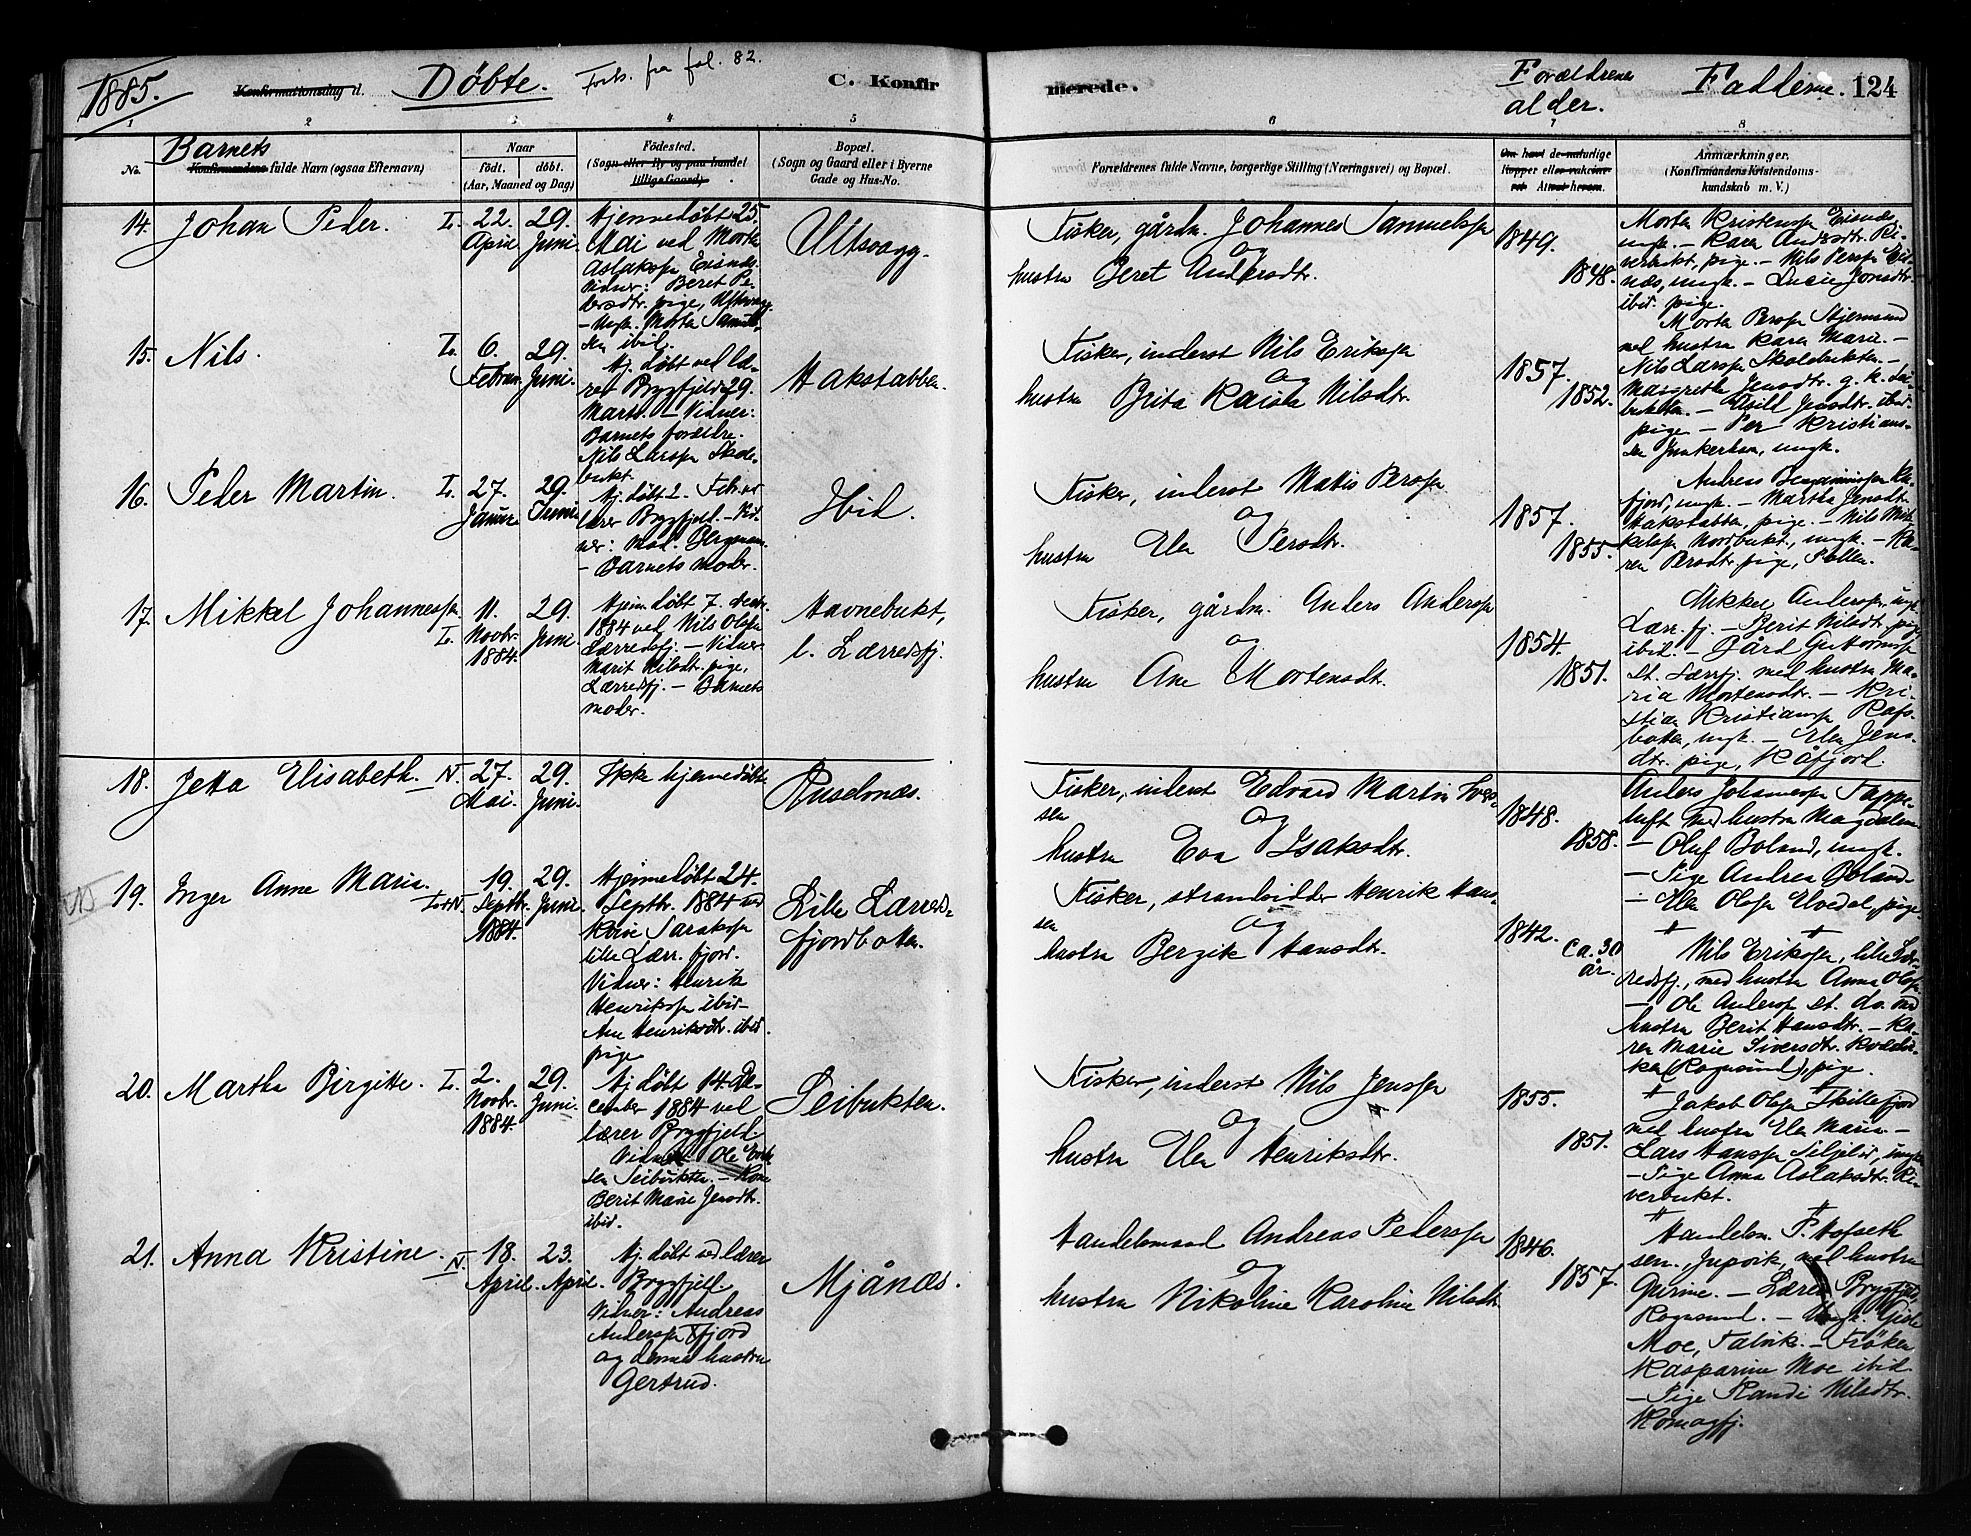 1885.
Konfirmationsdag d. Døbte. Forts. fra fol. 82. C. Konfirmerede. Forældrenes alder. Fadderne. 124
1 2 3 4 5 6 7 8
No.
Barnets
Konfirmandens fulde Navn (ogsaa Efternavn)
Naar
født. døbt.
(Aar, Maaned og Dag)
Fødested.
(Sogn eller By og paa Landet
tillige Gaard)
Bopæl.
(Sogn og Gaard eller i Byerne
Gade og Hus-No.
Forældrenes fulde Navne, borgerlige Stilling (Næringsvei) og Bopæl.
Om havt de naturlige
Kopper eller vakcine-
ret. Attest herom.
Anmærkninger.
(Konfirmandens Kristendoms-
kundskab m. V.)
14. Johan Peder. L.
22. April
29. Juni
Hjemmedøbt 25.
Mai ved Morten
Aslaksen Eisnæs.
Vidner: Beret Pe-
dersdtr. pige,
ibid.
Altsvagg.
Fisker, gårdm. Johannes Samuelssen
og
hustru Beret Andersdtr.
1849.
1848.
Morten Kristensen Eisnæs,
ungk. – Karen Andersdtr. Ri-
verbukt, pige. – Nils Persen Eis-
næs, ungk. – Lucie Jonsdtr.
ibid. pige.
15. Nils. L.
6. Februar
29. Juni.
Hj. døbt ved læ-
rer Brygfjeld 29.
Marts. – Vidner:
Barnets forældre.
Nils Larssen Skole-
bukt.
Hakstabben.
Fisker, inderst Nils Eriksen
og
hustru Brita Kaisa Nilsdtr.
1857.
1852.
Morten Persen Stjernsund
med hustru Karen Marie. –
Nils Larssen Skolebukten. –
Margrethe Jensdtr. g. k. Sei-
bukten. – Jensdtr. ibid.
pige – Per Kristians-
sen ungk.
16. Peder Martin. L.
27. Januar
29. Juni
Hj. døbt 2. Febr. ved
lærer Brygfjeld. – Vid-
ner: Mad. Bergmann
– Barnets moder.
Ibid.
Fisker, inderst Mathis Perssen
og
hustru Elen Persdtr.
1857.
1855.
Andreas Benjaminsen Kå-
fjord, ungk. – Martha Jensdtr.
Hakstabben, pige. – Nils Mik-
kelsen Nordbukt, ungk. – Ka-
ren Persdtr. pige, Pollen.
17. Mikkel Johannessen L.
11. Novbr. 1884.
29. Juni
Hjemdøbt 7. Decbr.
1884 ved Nils Olsen
Lærredsfj. – Vidner
Marit Nilsdtr. pige,
Lærredsfj. – Barnets
moder.
Havnebukt,
l. Lærredsfj.
Fisker, gårdm. Anders Andersen
og
hustru Ane Mortensdtr.
1854.
1851.
Mikkel Andersen, ungk.
Lærr. fj. – Berit Nilsdtr. pige
ibid. – Bård Guttormsen
St. Lærrfj. med hustru Ma-
ria Mortensdtr. – Kri-
stian Kristiansen Rafs-
botten, ungk. – Elen Jens-
dtr. pige, Kåfjord.
18. Jetta Elisabeth. N.
27. Mai.
29. Juni.
Ikke hjemmedøbt.
Russelvnæs.
Fisker, inderst Edvard Martin Iver-
sen
og
hustru Eva Isaksdtr.
1848.
1858.
Anders Johannessen Tappe-
luft med hustru Magdalena
– Oluf Boland, ungk.
– Pige Andrea Boland
– Elen Olsen Elvedal, pige.
19. Inger Anne Marie. L. + N.
19. Septbr. 1884.
29. Juni.
Hjemmedøbt 24.
Septbr. 1884 ved
lille Lærr. fjord.
Vidner: Henrik
Henriksen ibid –
Ane Henriksdtr. ibid.
pige
Lille Lærred-
fjordbotten.
Fisker, strandsidder Henrik Han-
sen
og
hustru Hansdtr.
1842.
ca. 30
år.
Nils Eriksen, lille Lær-
redsfj., med hustru Anna Olsen
– Ole Andersen St. do. med
hustru Berit Hansdtr. – Ka-
ren Marie Siversdtr.
(Rognsund), pige.
20. Martha Birgitte. L.
2. Novbr. 1884.
29. Juni.
Hj døbt 14. De-
cember 1884 ved
lærer Brygfjeld.
Vidner: Ole Erik-
sen Seibukten. – Kone
Berit Marie Jensdtr.
ibid.
Seibukten.
Fisker, inderst Nils Jenssen
og
hustru Elen Henriksdtr.
1855.
1851.
Jakob Olsen Skillefjord
med hustru Elen Maria –
Lars Hanssen ungk.
– Pige Anna Aslaksdtr. Ri-
verbukt.
21. Anna Kristine. N.
18. April.
23. April.
Hj. døbt ved lærer
Brygfjeld.
Vidner: Andreas
Andersen
og dennes hustru
Gertrud.
Mjånæs.
Handelsmand Andreas Pederssen
og
hustru Nikoline Karoline Nilsdtr.
1846.
1857.
Handelsm. P. Hofseth
sen., Jupvik, med hustru
Quirine. – Lærer Brygfjeld,
Rognsund. – Ungk.
Moe, Talvik. – Frøken
Kasparine Moe ibid.
– Pige Randi Nilsdtr.
Komagfj.